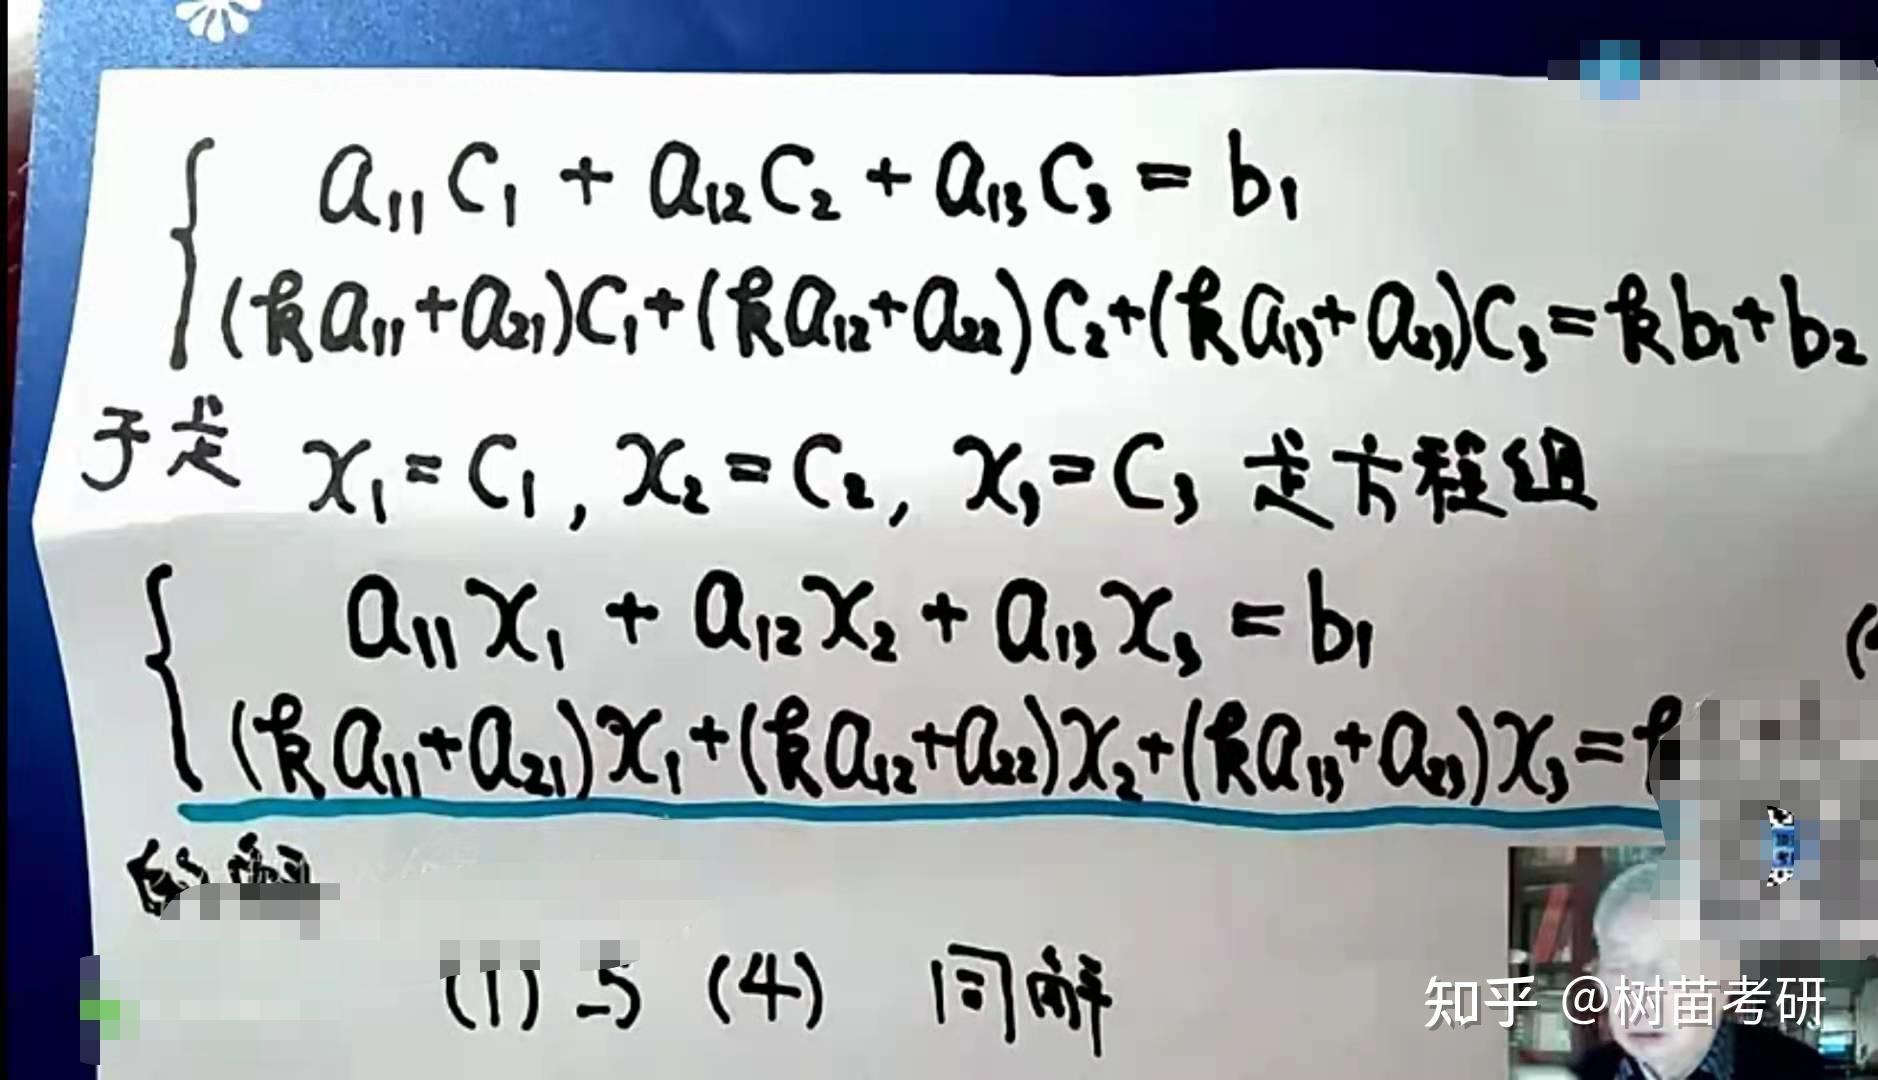 a₁₁c₁ + a₁₂c₂ + a₁₃c₃ = b₁
(ka₁₁+a₂₁)c₁+(ka₁₂+a₂₂)c₂+(ka₁₃+a₂₃)c₃=kb₁+b₂
于是 x₁=c₁, x₂=c₂, x₃=c₃ 是方程组
a₁₁x₁ + a₁₂x₂ + a₁₃x₃ = b₁
(ka₁₁+a₂₁)x₁+(ka₁₂+a₂₂)x₂+(ka₁₃+a₂₃)x₃=k
的解
(1)与(4) 同解
知乎 @树苗考研